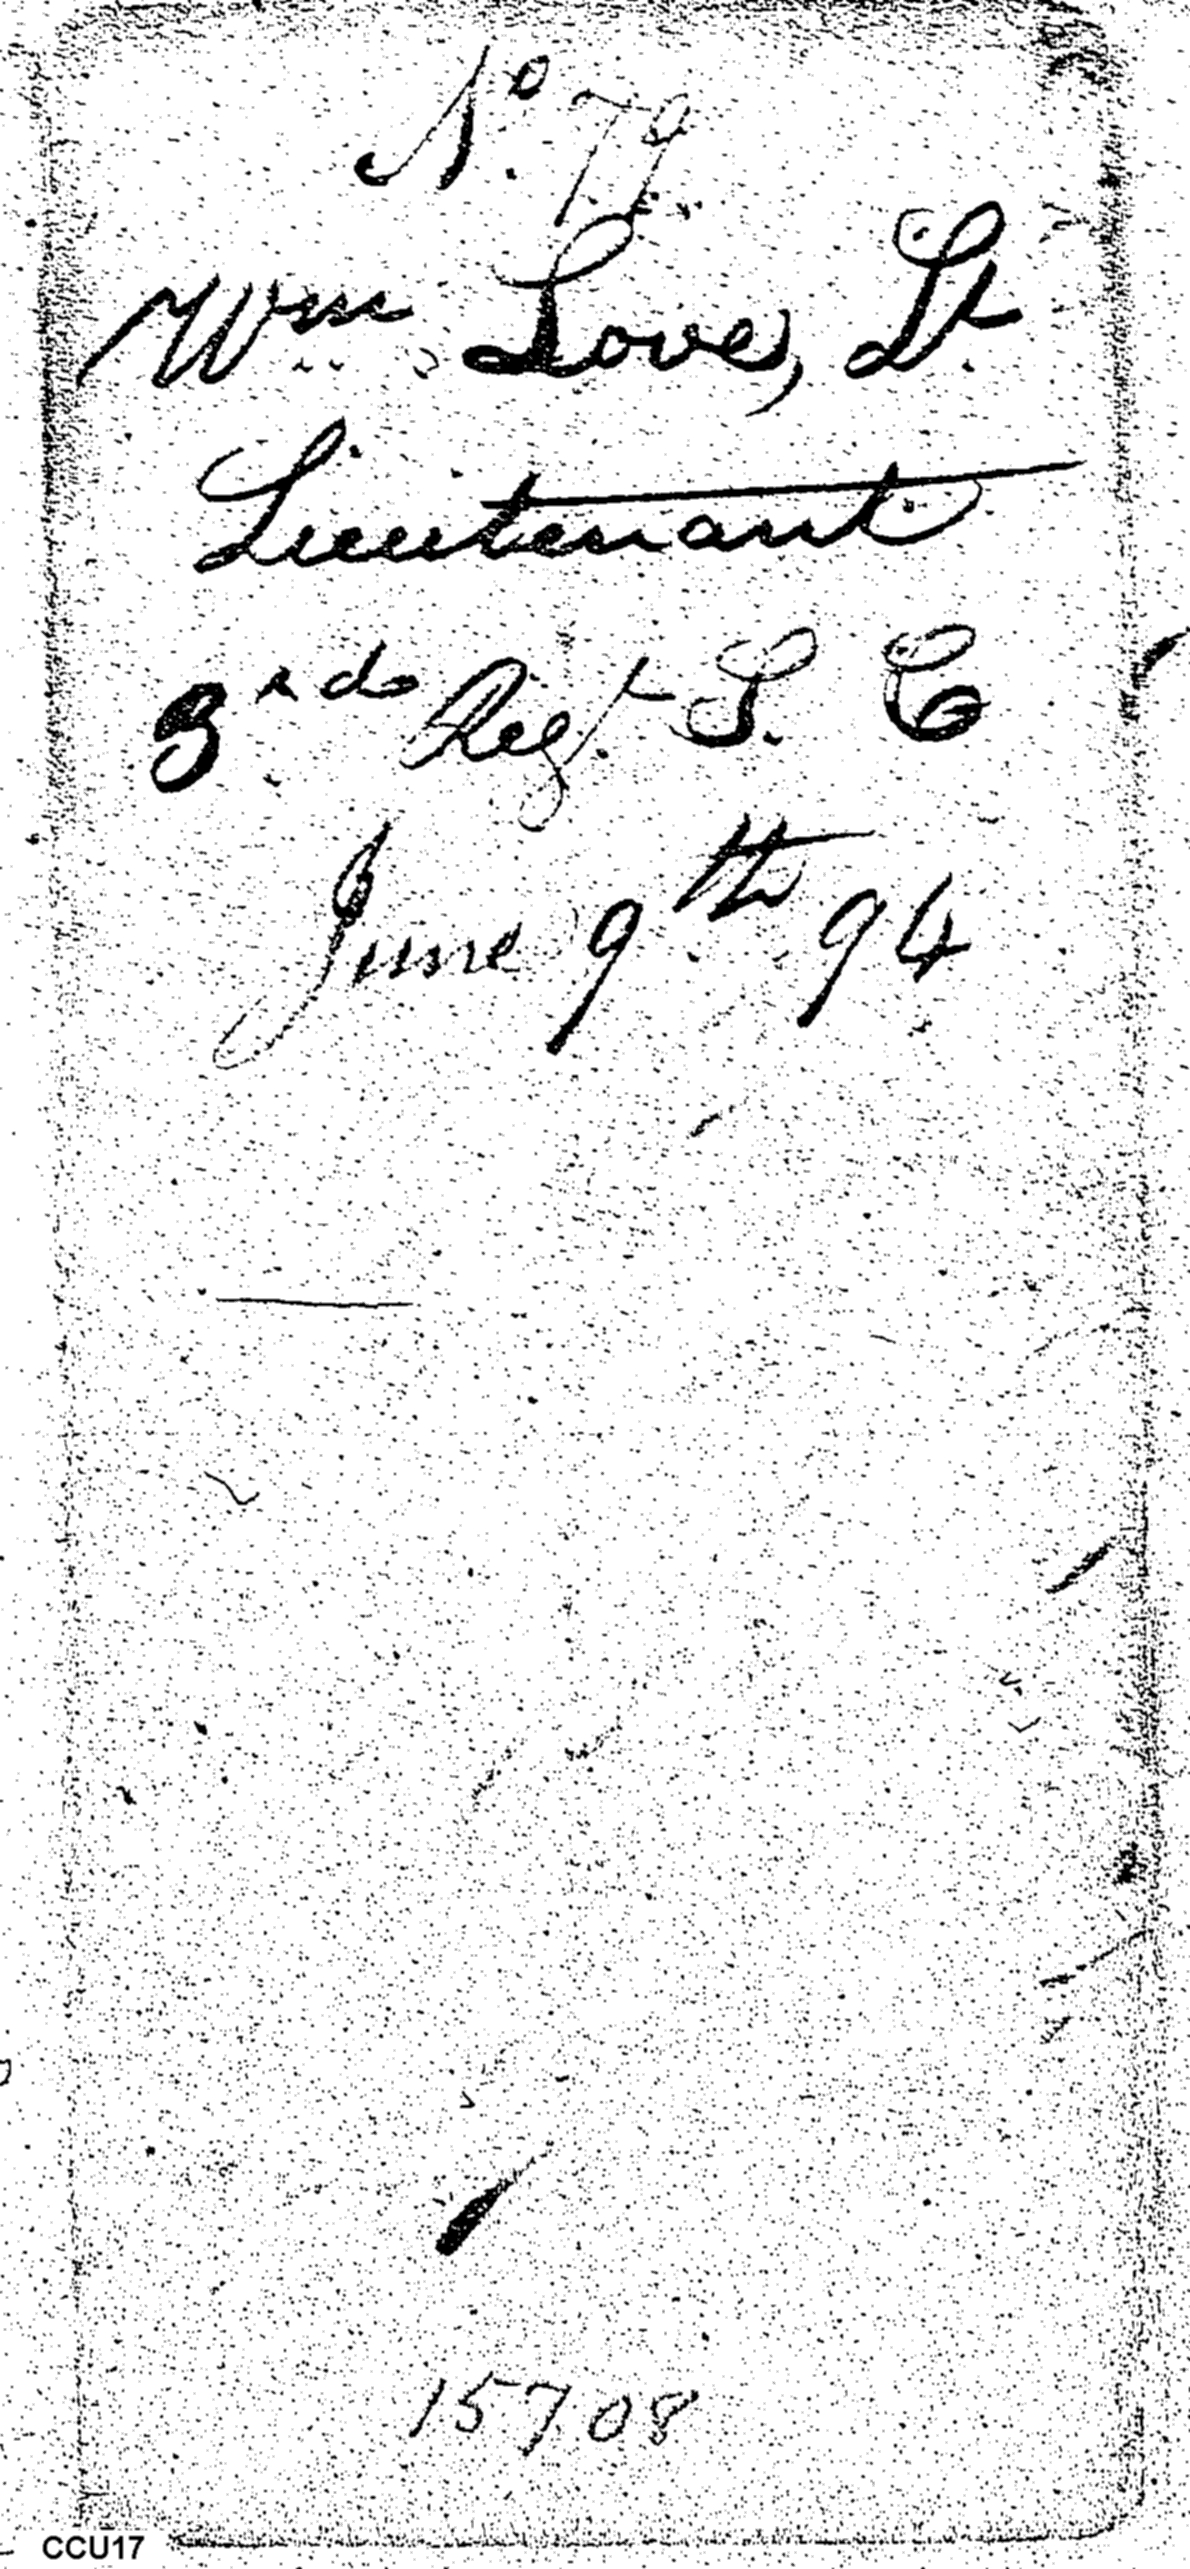 No. 79.
Wm Love, Lt.
Lieutenant
3rd Regt S. C
June 9th 94
15708
CCU17